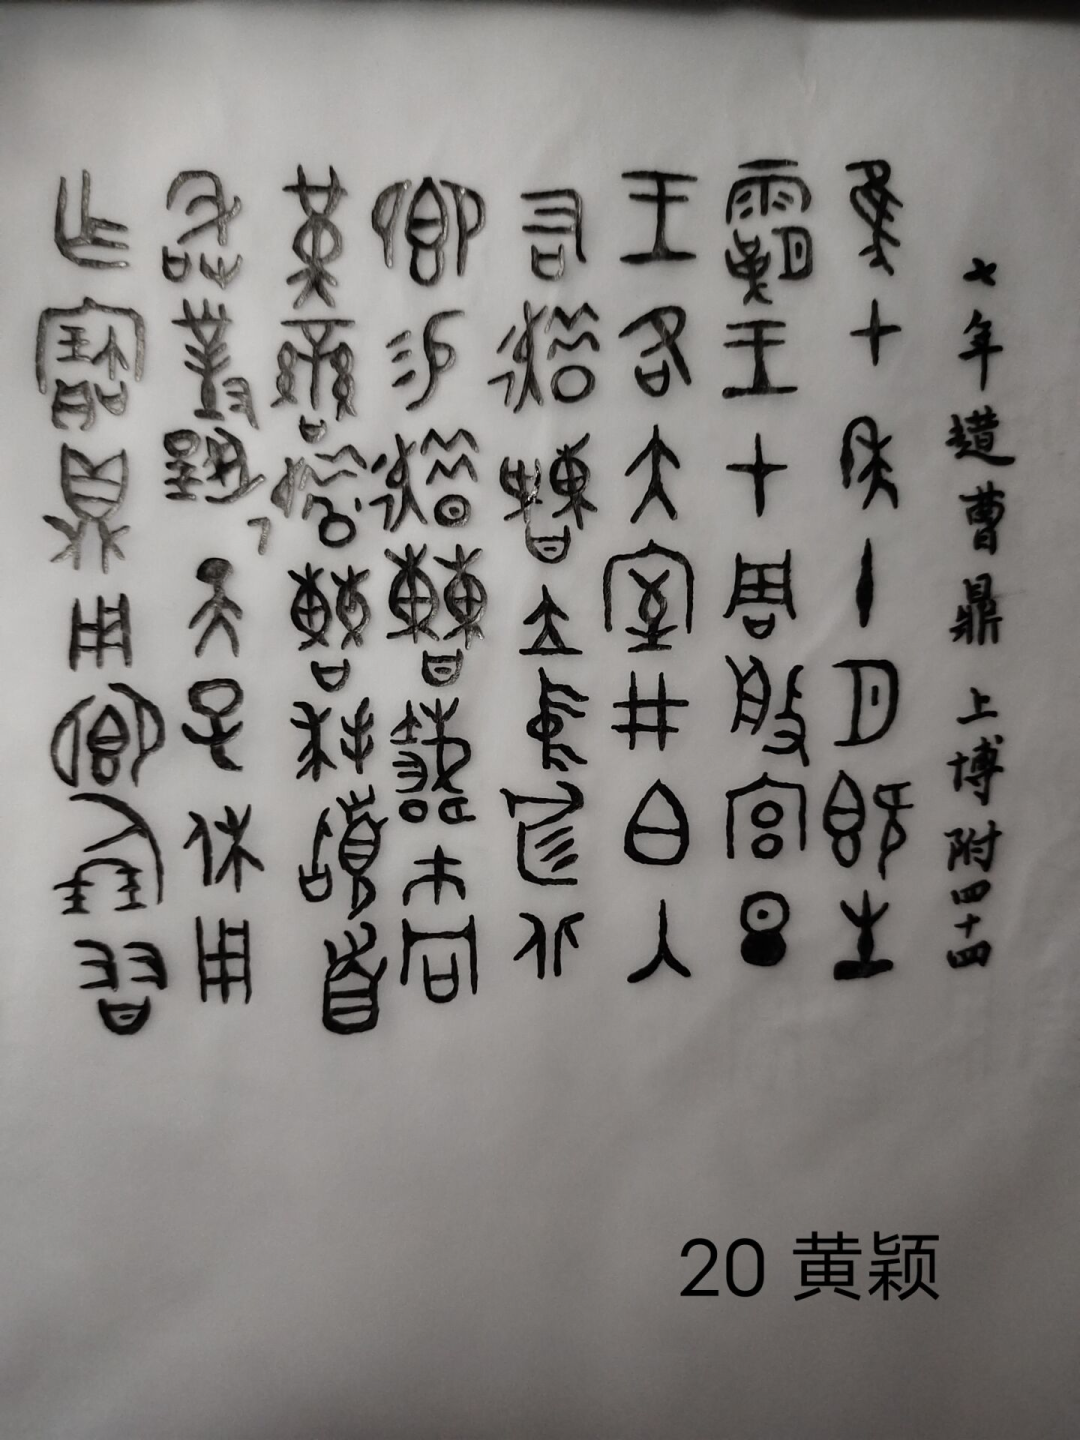 七年趞曹鼎 上博附四十四
隹七年十月既生
霸王才周般宫旦
王各大室井白入
右趞曹立中廷北
卿易趞曹市冋
黄䜌趞曹拜䭫首
敢對揚天子休用
乍寶鼎用卿倗友
20 黄颖